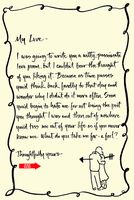 My Love -
I was going to write you a witty, passionate
love poem, but I couldn't bear the thought
of you liking it. Because as time passes
you'd think back, fondly to that day and
wonder why I didn't do it more often. Soon
you'd begin to hate me for not being the poet
you thought I was and then out of nowhere
you'd toss me out of your life as if you never
knew me. What do you take me for - a fool?
Thoughtfully yours -